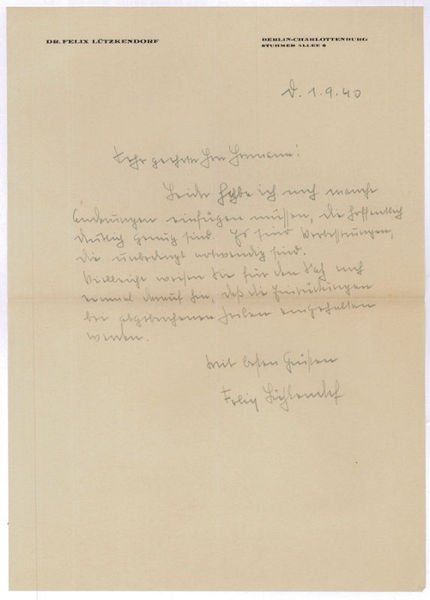 DR. FELIX LÜTZKENDORF
BERLIN-CHARLOTTENBURG
STÜRMER ALLEE 6
d. 1.9.40
Sehr geehrter Herr Hermann!
Leider habe ich noch manche
Änderungen einfügen müssen, die hoffentlich
deutlich genug sind. Es sind Verbesserungen,
die unbedingt notwendig sind.
Vielleicht weisen Sie für den Satz noch
einmal darauf hin, daß die Einrückungen
bei abgebrochenen Zeilen eingehalten
werden.
Mit besten Grüßen
Felix Lützkendorf